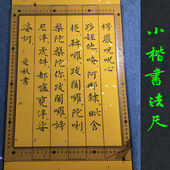 楞嚴咒咒心
跢姪他唵阿那隸毗舍
提鞞囉跋闍囉陀唎
槃陀槃陀你跋闍囉謗
尼泮虎𤙖都嚧甕泮娑
婆訶
愛秋書
小楷書法尺